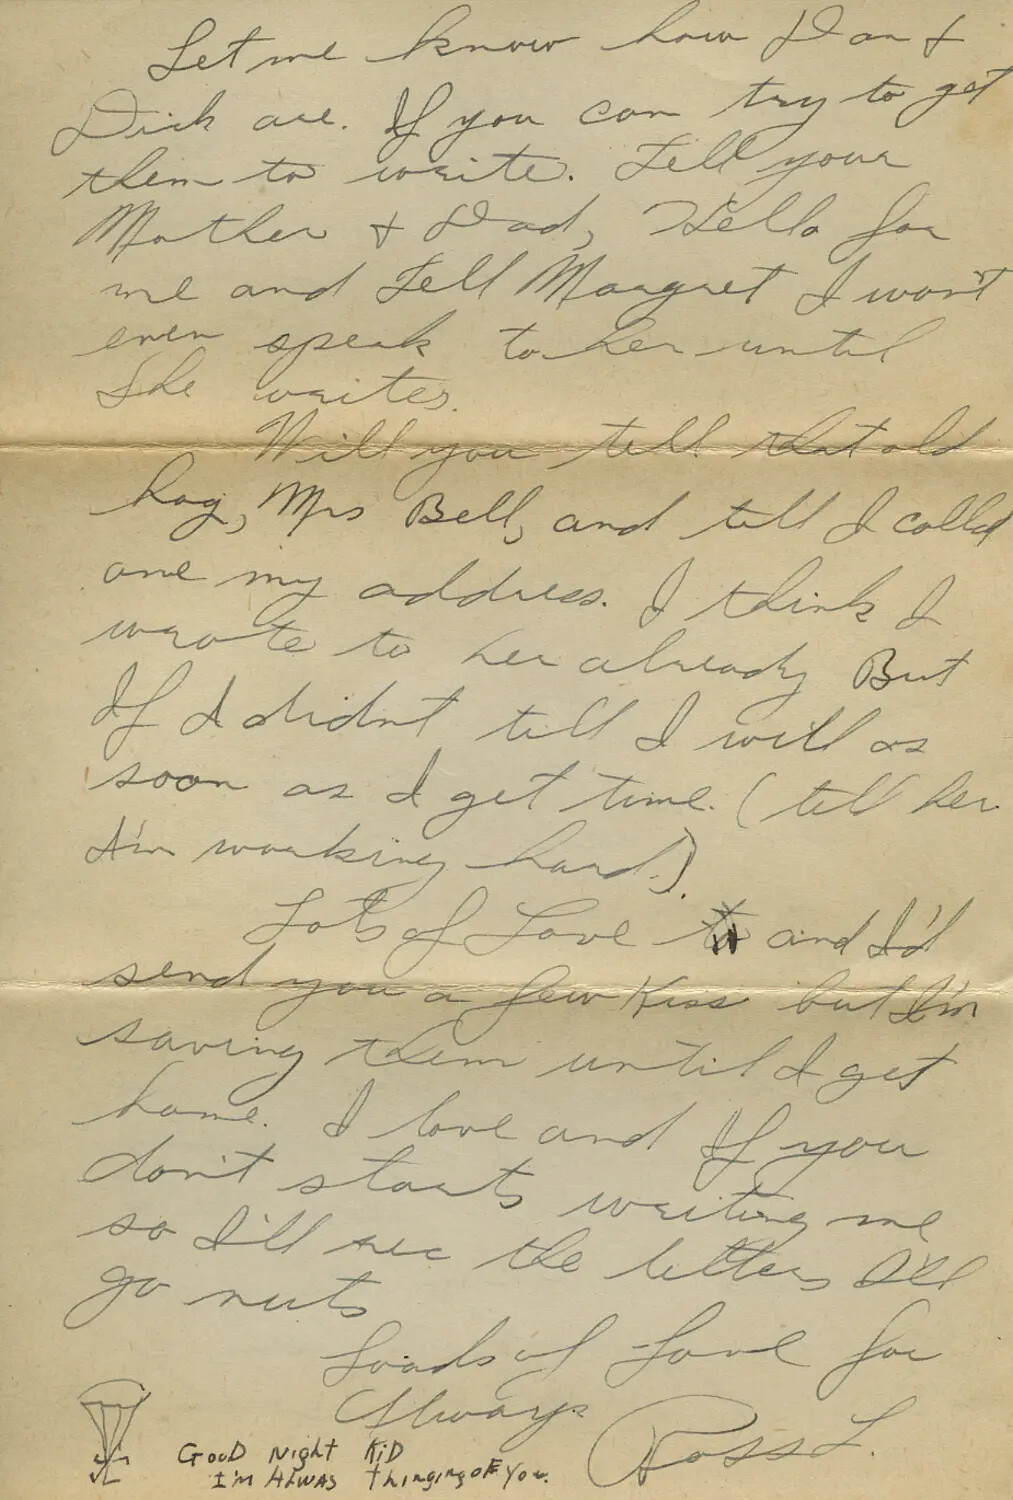 Let me know how Dan &
Dick are. If you can try to get
them to write. Tell your
Mother & Dad, Hello for
me and Tell Margret I won't
even speak to her until
She writes.
Will you tell that old
hag, Mrs Bell, and tell I
one my address. I think I
wrote to her already But
If I didnt tell I will as
soon as I get time. (tell her
I'm working hard.)
Lots of Love and I'd
send you a few Kiss but I'm
saving them until I get
home. I love and If you
don't starts writing me
so I'll rec the letters I'll
go nuts
Loads of Love for
Always
Ross L.
GooD Night KiD
I'm AlwAs thinging oF You.